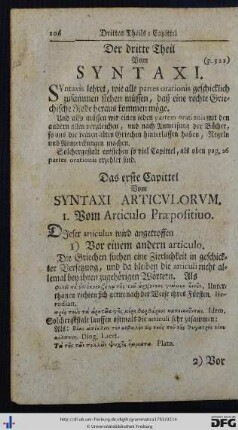 106 Dritten Theils I Capittel
Der dritte Theil
Vom (p. 522)
SYNTAXI.
SYntaxis lehret, wie alle partes orationis geschicklich
zusammen stehen müssen, daß eine rechte Grie-
chische Rede heraus kommen möge.
Und also müssen wir einen jeden partem orationis mit den
andern allen vergleichen, und nach Anweisung der Bücher,
so uns die weisen alten Griechen hinterlassen haben, Regeln
und Anmerckungen machen.
Solchergestalt entstehen so viel Capittel, als oben pag. 26
partes orationis erzehlet sind.
Das erste Capittel
Vom
SYNTAXI ARTICVLORVM.
1. Vom Articulo Præpositiuo.
DIeser articulus wird angetroffen
1) Vor einem andern articulo.
Die Griechen suchen eine Zierlichkeit in geschick-
ter Versetzung, und da bleiben die articuli mehr al-
lemal bey ihren zugehörigen Wörtern. Als
Unter-
thanen richten sich gerne nach der Weise ihres Fürsten.
Solchergestalt lauffen oftmals drey articuli sehr zusammen:
Als:
Diog. Laert.
Τὰ τῆς τῶν πολλῶν ψυχῆς ὄμματα. Plato.
2) Vor
© Universitätsbibliothek Freiburg